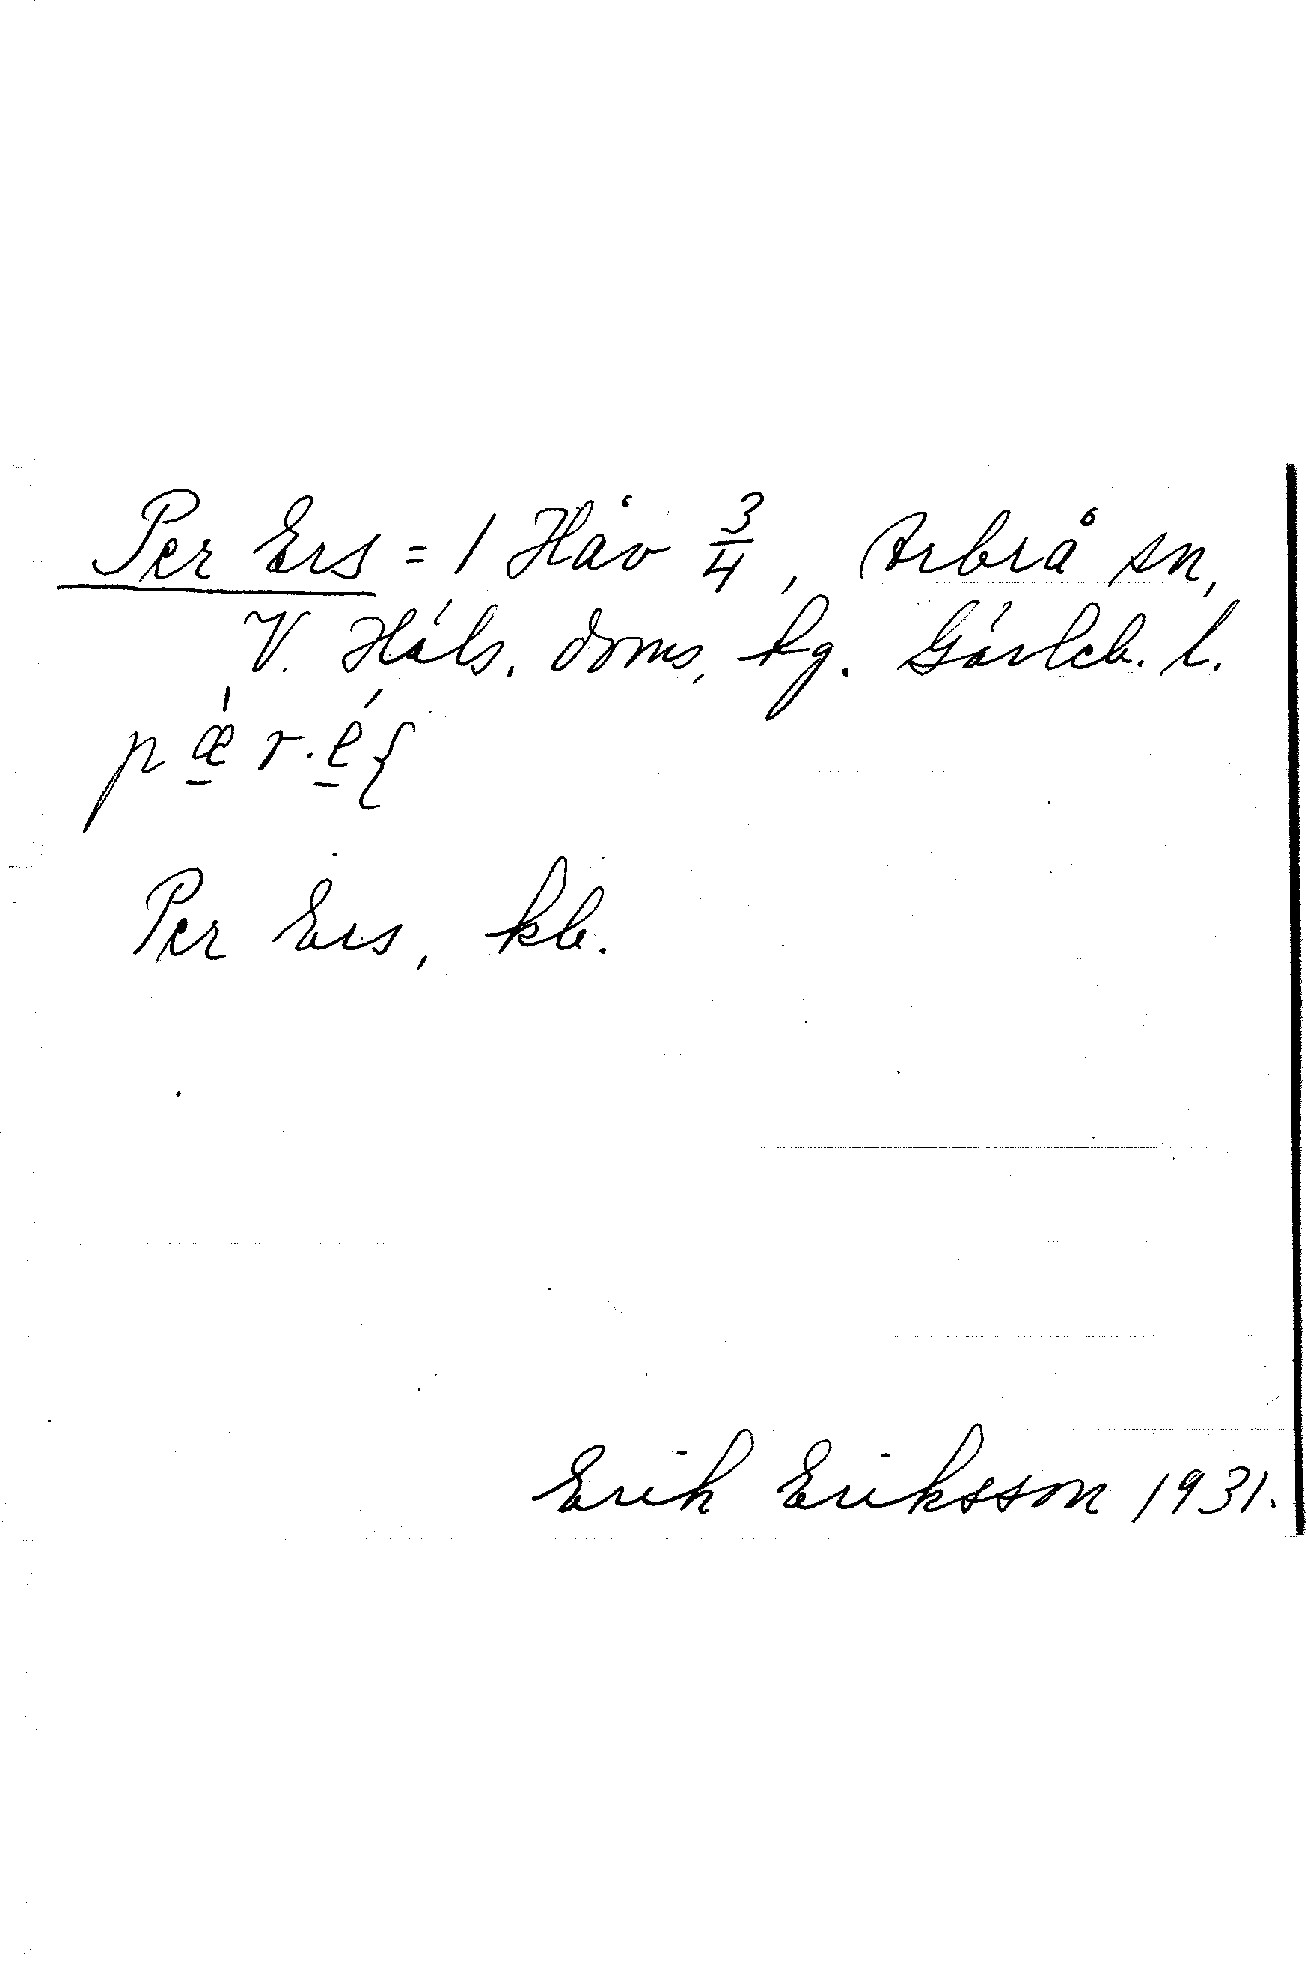 Per Ers = 1 Håv 3/4, Arbrå sn,
V. Häls. doms, kg. Gävleb. l.
pǽ̱r.é̱{
Per Ers, kb.
Erik Eriksson 1931.